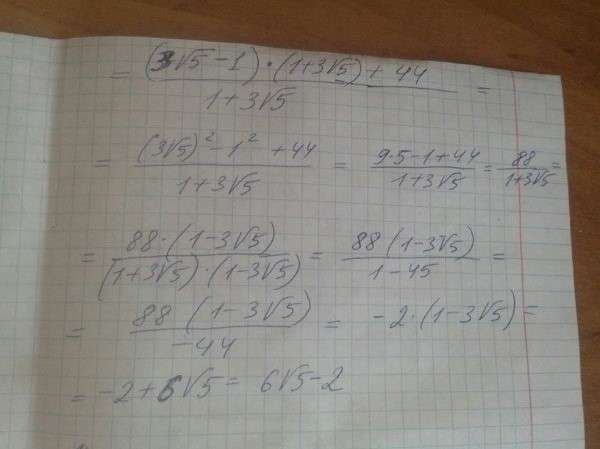 = ((3√5 - 1) · (1+3√5) + 44) / (1+3√5) =
= ((3√5)² - 1² + 44) / (1+3√5) = (9·5-1+44) / (1+3√5) = 88 / (1+3√5) =
= (88·(1-3√5)) / ((1+3√5)·(1-3√5)) = (88(1-3√5)) / (1-45) =
= (88 (1-3√5)) / (-44) = -2·(1-3√5) =
= -2+6√5 = 6√5-2